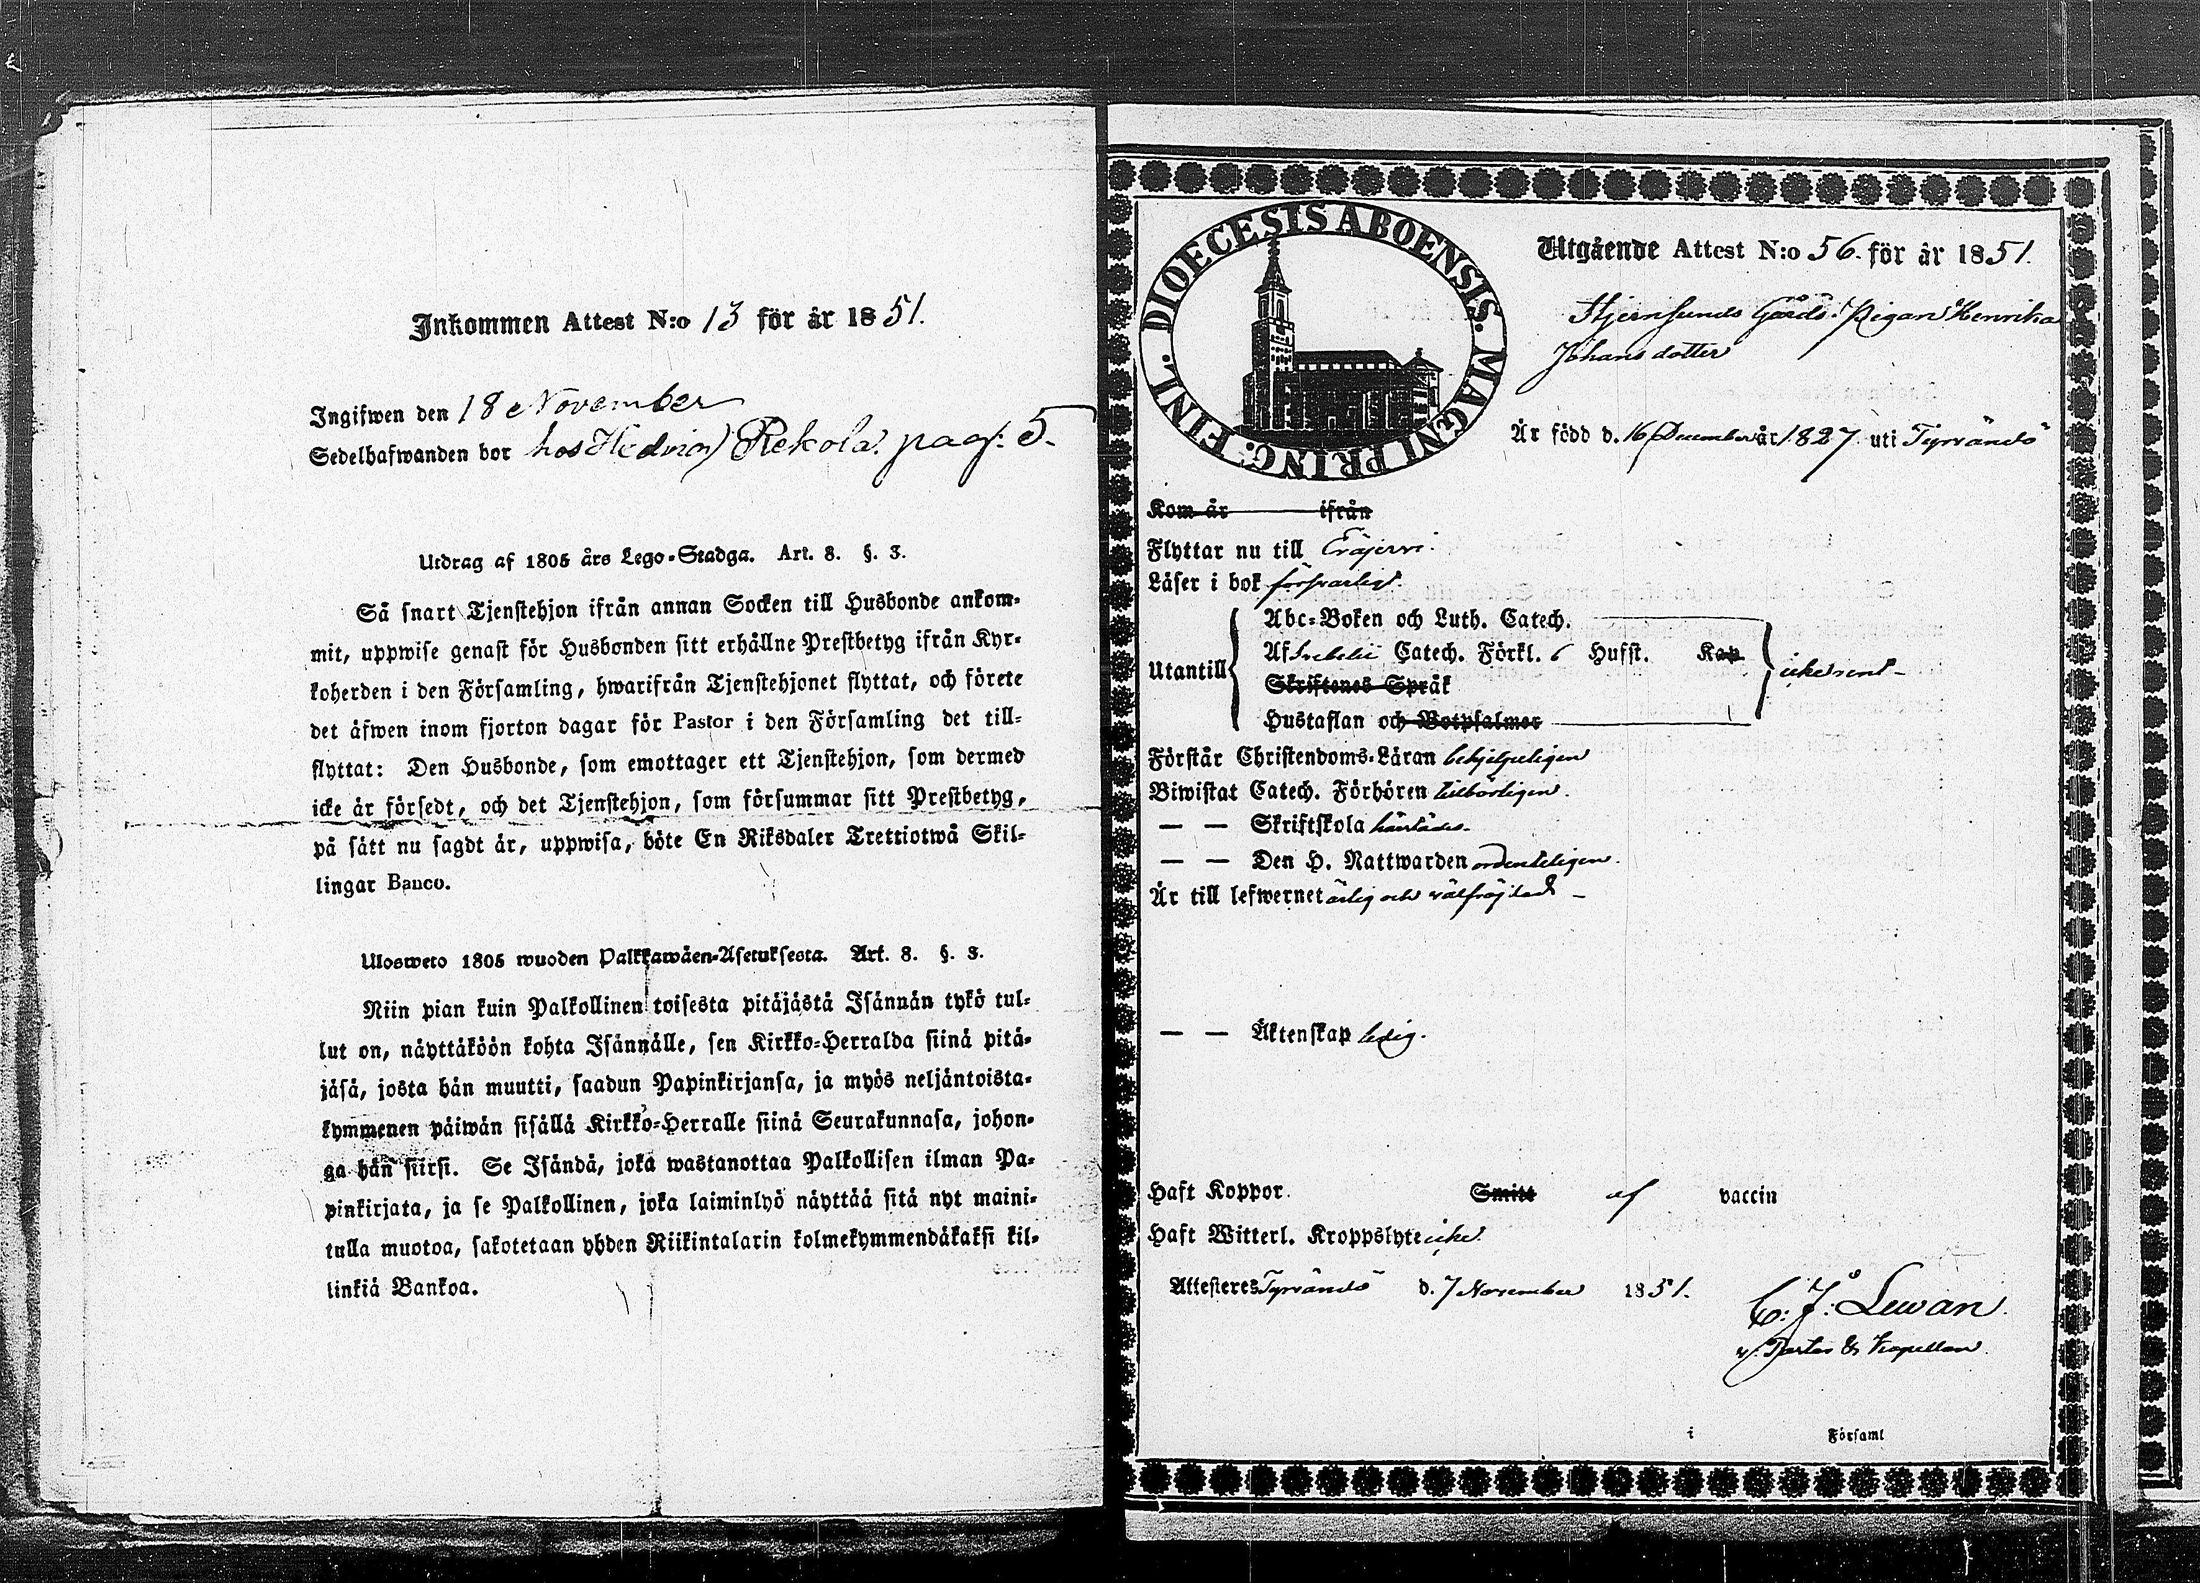 Inkommen Attest N:o 13 för år 1851.
Ingifwen den 18 November
Sedelhafwanden bor hos Hedvig Rekola. pag: 5.
Utdrag af 1805 års Lego-Stadga. Art. 8. §. 3.
Så snart Tjenstehjon ifrån annan Socken till Husbonde ankom-
mit, uppwise genast för Husbonden sitt erhållne Prestbetyg ifrån Kyr-
koherden i den Församling, hwarifrån Tjenstehjonet flyttat, och förete
det äfwen inom fjorton dagar för Pastor i den Församling det till-
flyttat: Den Husbonde, som emottager ett Tjenstehjon, som dermed
icke är försedt, och det Tjenstehjon, som försummar sitt Prestbetyg,
på sätt nu sagdt är, uppwisa, böte En Riksdaler Trettiotwå Skil-
lingar Banco.
Ulosweto 1805 wuoden Palkkawäen-Asetuksesta. Art. 8. §. 3.
Niin pian kuin Palkollinen toisesta pitäjästä Isännän tykö tul-
lut on, näyttäköön kohta Isännälle, sen Kirkko-Herralda siinä pitä-
jäsä, josta hän muutti, saadun Papinkirjansa, ja myös neljäntoista-
kymmenen päiwän sisällä Kirkko-Herralle siinä Seurakunnasa, johon-
ga hän siirsi. Se Isändä, joka wastanottaa Palkollisen ilman Pa-
pinkirjata, ja se Palkollinen, joka laiminlyö näyttää sitä nyt maini-
tulla muotoa, sakotetaan yhden Riikintalarin kolmekymmendäkaksi kil-
linkiä Bankoa.
DIOECESIS ABOENSIS. MAGNI PRINC. FINL.
Utgående Attest N:o 56. för år 1851.
Stjernsunds Gårds Pigan Henrika
Johansdotter
Är född d. 16 December år 1827 uti Tyrvändö
Kom år ifrån
Flyttar nu till Eräjervi.
Läser i bok försvarligt.
Abc-Boken och Luth. Catech.
Utantill Af Svebelii Catech. Förkl. 6 Hufst. Kap icke rent
Skriftenes Språk
Hustaflan och Botpsalmer
Förstår Christendoms-Läran behjelpeligen
Biwistat Catech. Förhören tillbörligen.
— — Skriftskola härstädes.
— — Den H. Nattwarden ordenteligen.
Är till lefwernet ärlig och välfrejdad
— — Äktenskap ledig.
Haft Koppor. Smitt af vaccin
Haft Witterl. Kroppslyte icke.
Attesteres Tyrvändö d. 7 November 1851.
C: J: Lewan.
v. Pastor & Kapellan.
i Församl